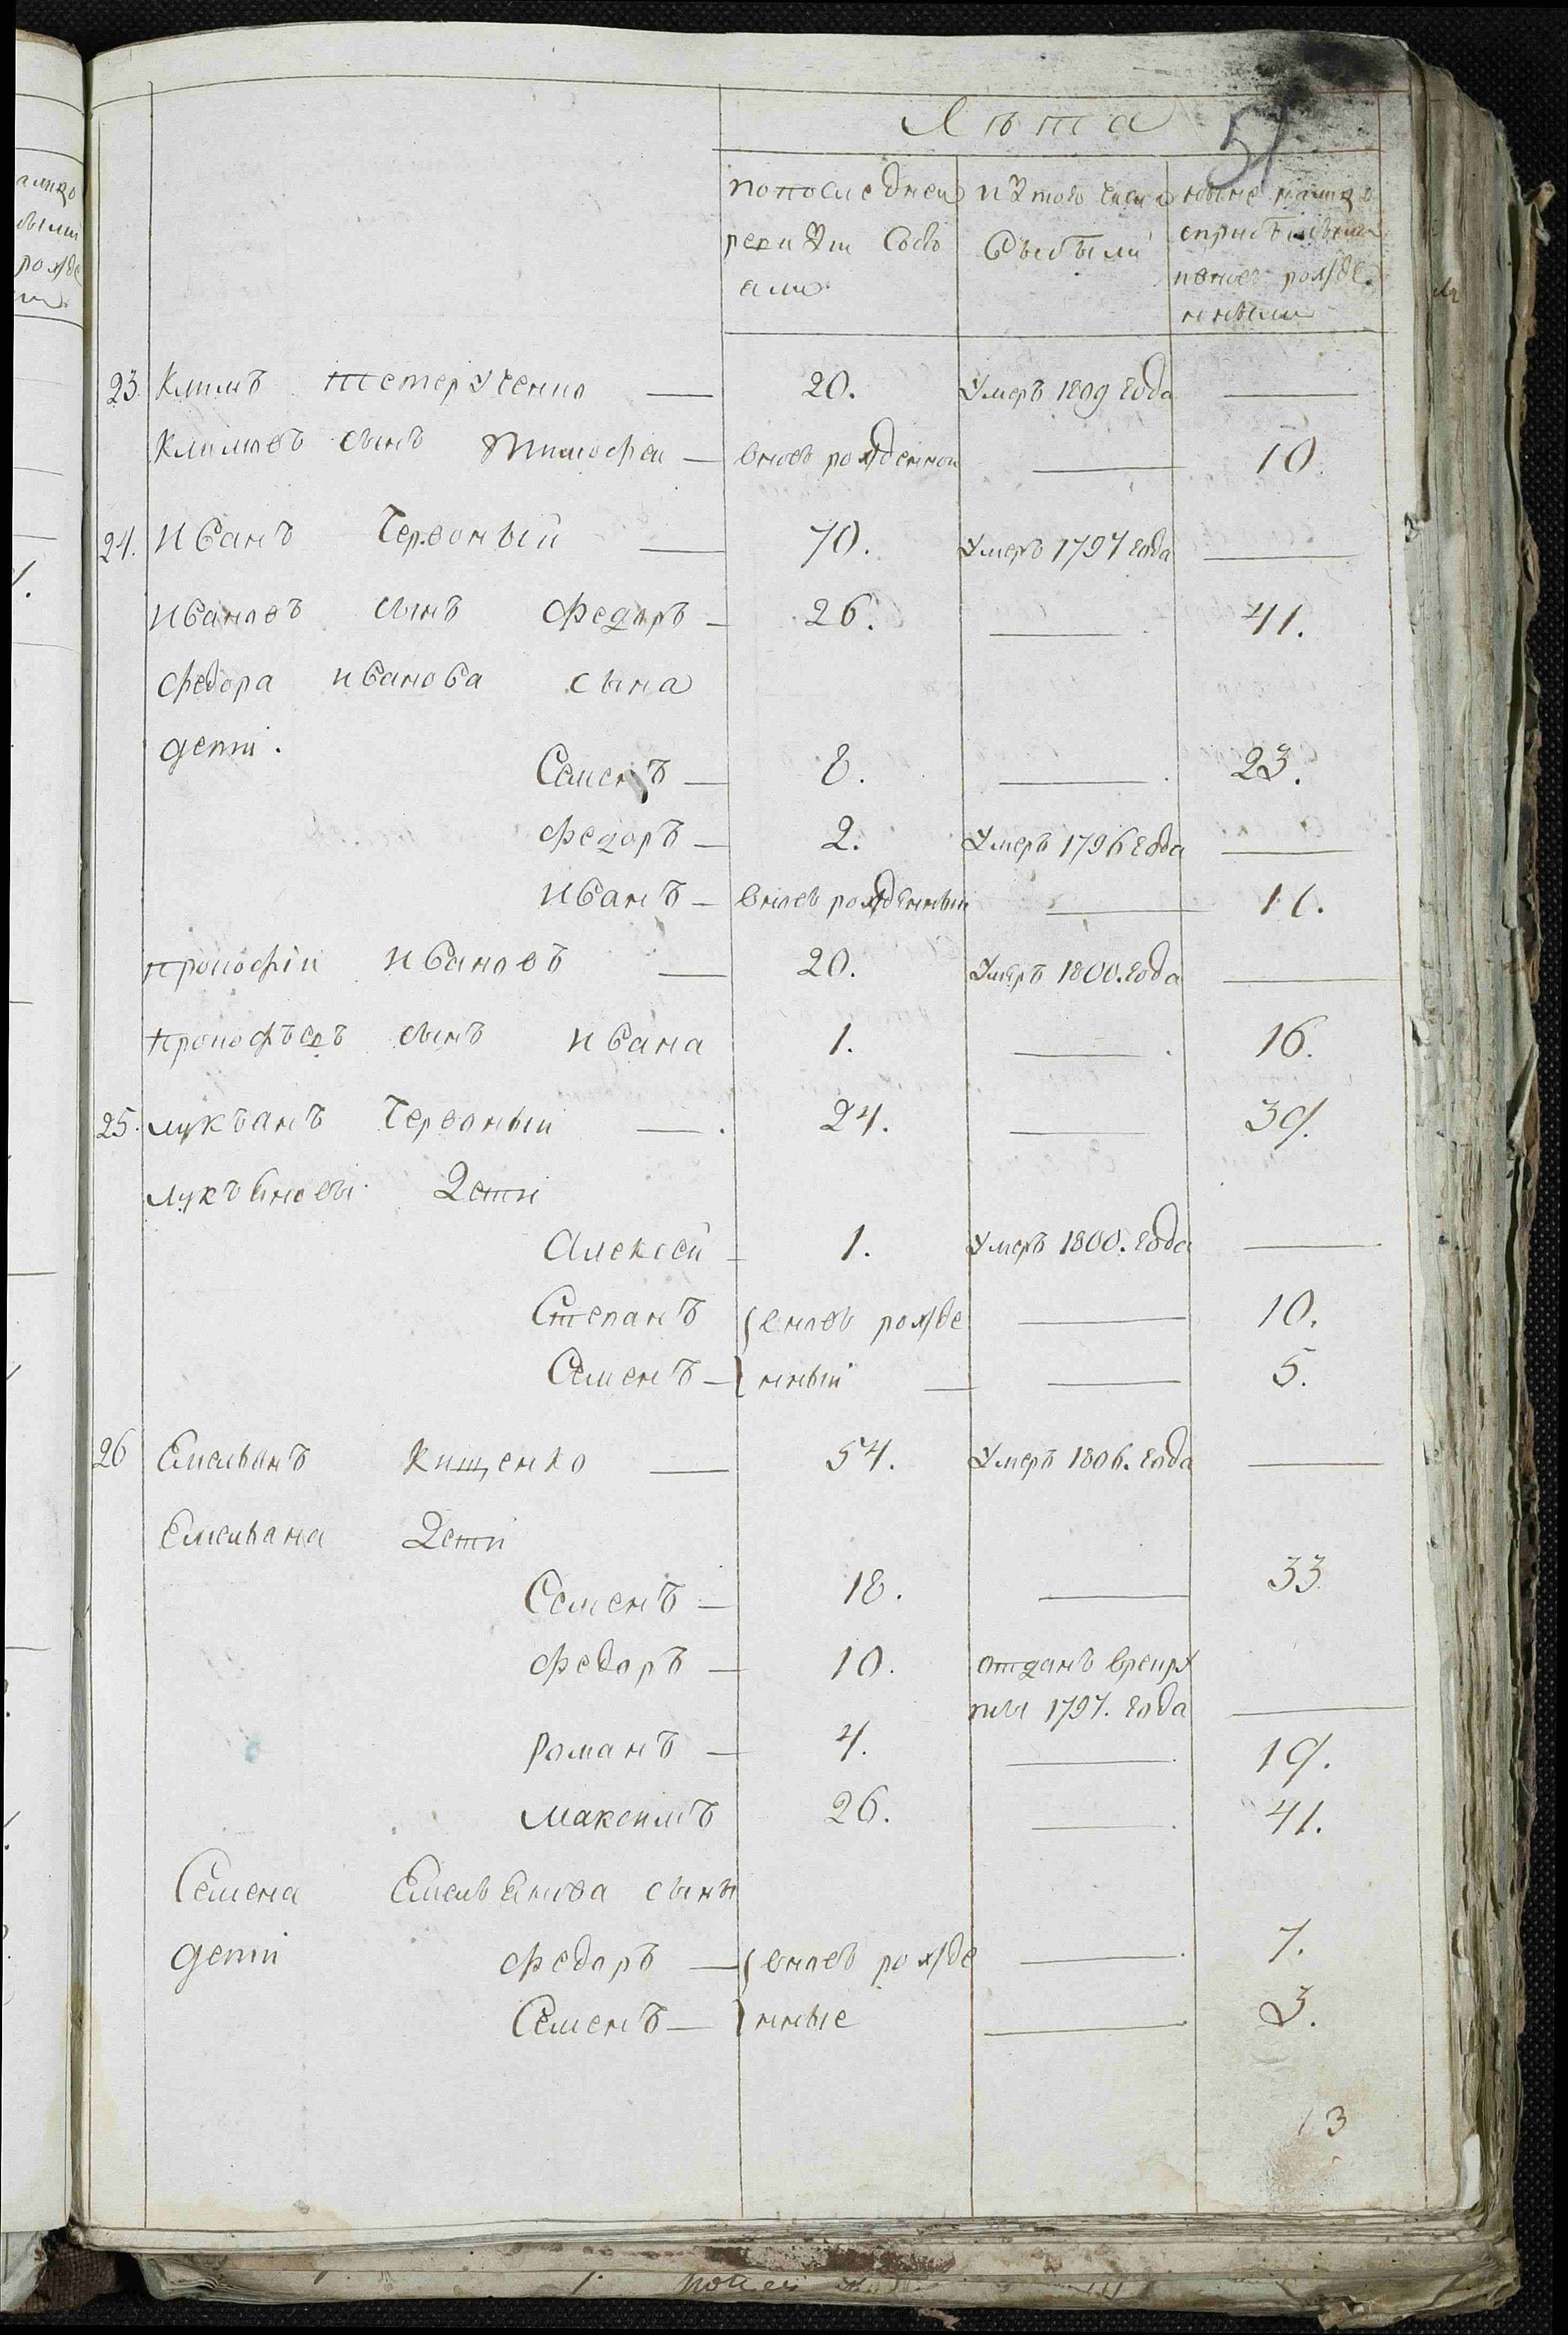 Лѣта
51
по последней
ревизїи состо
али
изтого числа
выбыли
ныне налицо
сприбылыми
ивновь рожде
нными
23. Климъ Тетерученко — 20. умеръ 1809 года —
Климовъ сынъ Тимофей — вновь рожденной — 10.
24. Иванъ Червоный — 70. умеръ 1797 года —
Ивановъ сынъ Федоръ — 26. — 41.
Федора Иванова сына
дети.
Семенъ — 8. — 23.
Федоръ — 2. умеръ 1796 года —
Иванъ — вновь рожденный — 11.
Прокофїй Ивановъ — 20. умеръ 1800. года —
Прокофъевъ сынъ Ивана 1. — 16.
25. Лукъанъ Червоный — 24. — 39.
Лукъяновы Дети
Алексей — 1. умеръ 1800. года —
Степанъ вновь рожде — 10.
Семенъ — нный — 5.
26 Емельянъ Кищенко — 54. умеръ 1806. года —
Емельана Дети
Семенъ — 18. — 33.
Федоръ — 10. отданъ врекру
ты 1797. года —
Романъ — 4. — 19.
Максимъ 26. — 41.
Семена Емельянова сына
дети Федоръ — вновь рожде — 7.
Семенъ — нные — 3.
13